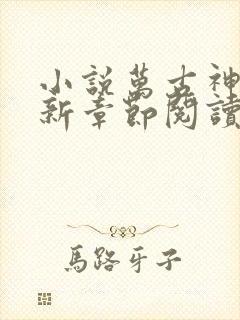 小說萬古神
新章節閱讀
馬路牙子